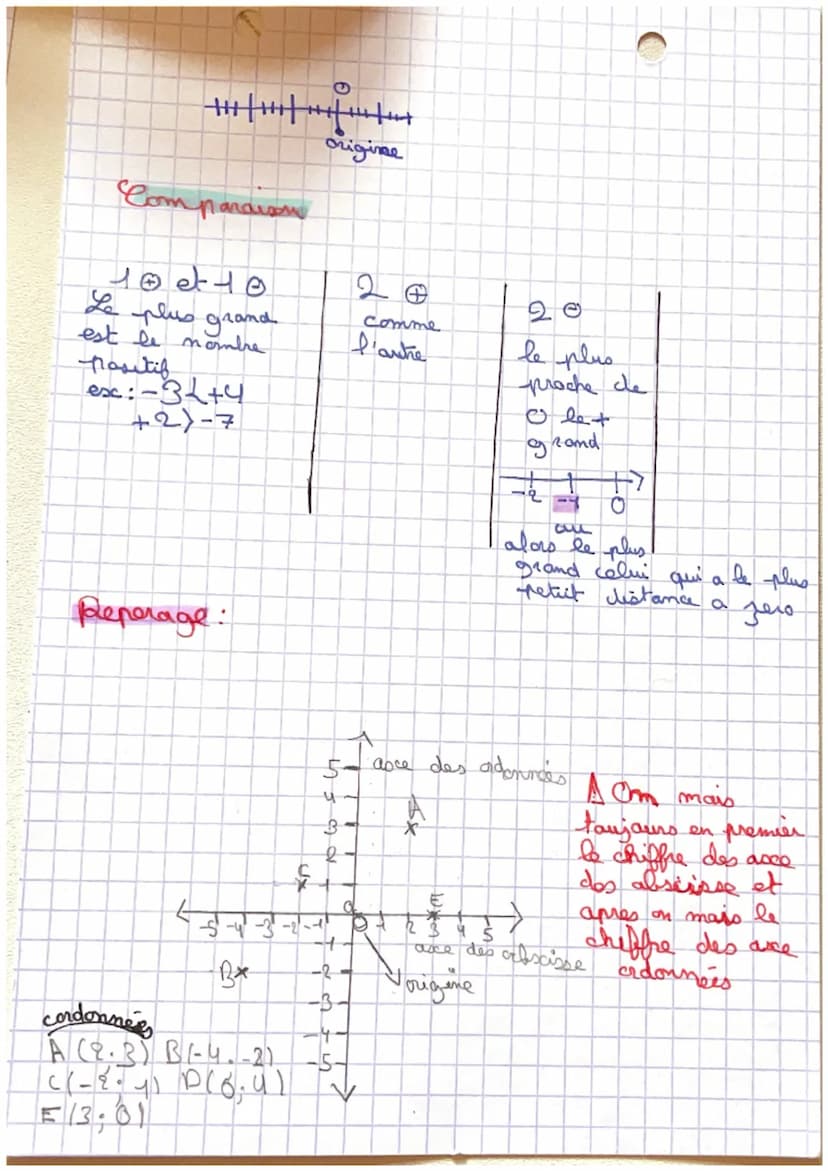 0
origine
Comparaison
1 ⊕ et 1 ⊖
Le plus grand
est le nombre
positif
ex : -3 < +4
+2 > -7
2 ⊕
comme
l'autre
2 ⊖
le plus
proche de
0 le +
grand
-2 -1 0
ou
alors le plus
grand celui qui a le plus
petit distance a zero
Reperage :
5 axe des ordonnés
4 A
3
2
C
1
E
-5 -4 -3 -2 -1 0 1 2 3 4 5
-1 axe des abscisse
B -2 origine
-3
-4
-5
⚠ On mais
toujours en premier
le chiffre des axe
des abscisse et
apres on mais le
chiffre des axe
ordonnées
cordonnées
A (2;3) B(-4;-2)
C(-2;1) D(6;4)
E(3;0)